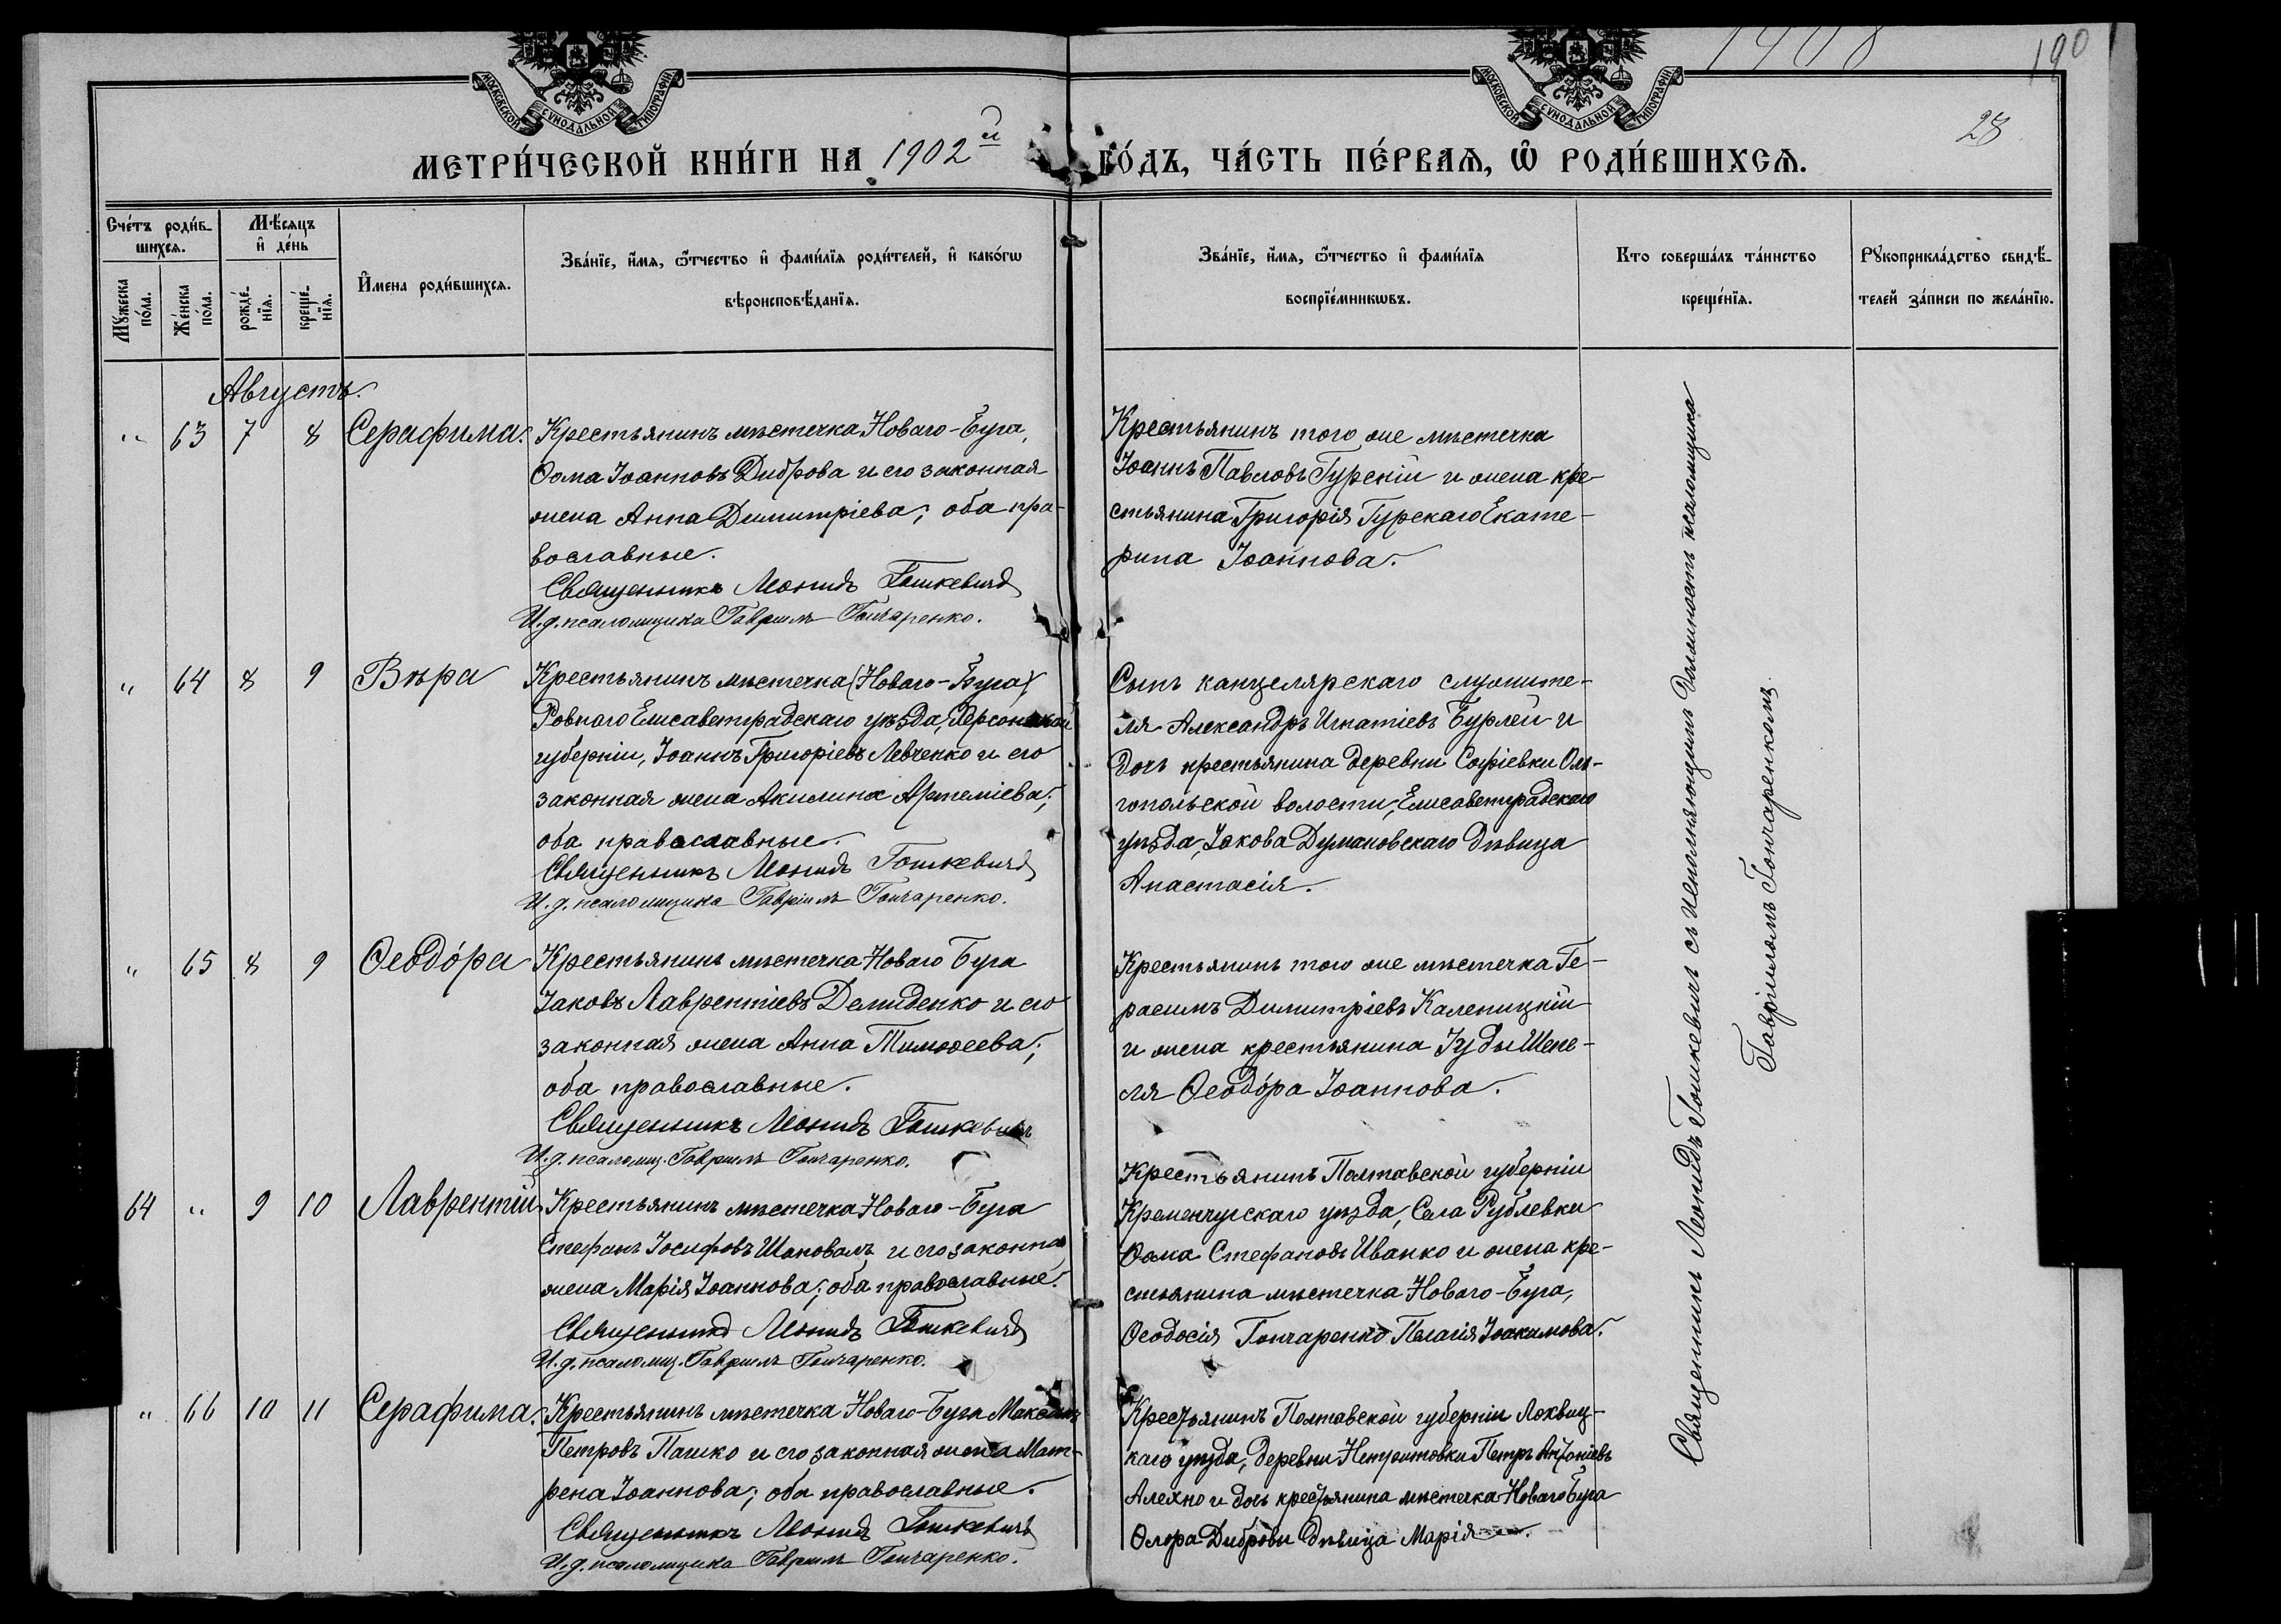 МОСКОВСКОЙ СѴНОДАЛЬНОЙ ТИПОГРАФІИ
МОСКОВСКОЙ СѴНОДАЛЬНОЙ ТИПОГРАФІИ
1908
190
28
МЕТРИ́ЧЕСКОЙ КНИ́ГИ НА 1902й
ГО́ДЪ, ЧА́СТЬ ПЕ́РВАѦ, Ѿ РОДИ́ВШИХСѦ.
Сче́тъ роди́в-
шихсѧ.
Мѣ́сѧцъ
и҆ де́нь
Мꙋ́жеска по́ла.
Же́нска по́ла.
рожде́-нїѧ.
креще́-нїѧ.
И҆мена роди́вшихсѧ.
Зва́нїе, и҆́мѧ, ѻ҆́тчество и҆ фами́лїѧ роди́телей, и҆ како́гѡ
вѣроисповѣ́данїѧ.
Зва́нїе, и҆́мѧ, ѻ҆́тчество и҆ фами́лїѧ
воспрїе́мникѡвъ.
Кто соверша́лъ та́инство
креще́нїѧ.
Рꙋкоприкла́дство свидѣ́-
телей за́писи по жела́нїю.
Августъ.
" 63 7 8 Серафима.
Крестьянинъ мѣстечка Новаго-Буга,
Ѳома Іоанновъ Диброва и его законная
жена Анна Димитріева; оба пра-
вославные.
Священникъ Леонидъ Гошкевичъ
И.д. псаломщика Гавріилъ Гончаренко.
Крестьянинъ того же мѣстечка
Іоаннъ Павловъ Гурскій и жена кре-
стьянина Григорія Гурскаго Екате-
рина Іоаннова.
" 64 8 9 Вѣра
Крестьянинъ мѣстечка (Новаго-Буга)
Ровнаго Елисаветградскаго уѣзда, Херсонской
губерніи, Іоаннъ Григоріевъ Левченко и его
законная жена Акилина Артеміева;
оба православные.
Священникъ Леонидъ Гошкевичъ
И.д. псаломщика Гавріилъ Гончаренко.
Сынъ канцелярскаго служите-
ля Александръ Игнатіевъ Бурлей и
дочь крестьянина деревни Софіевки Оль-
гопольской волости, Елисаветградскаго
уѣзда, Іакова Думановскаго дѣвица
Анастасія.
" 65 8 9 Ѳеодо́ра
Крестьянинъ мѣстечка Новаго Буга
Іаковъ Лаврентіевъ Демиденко и его
законная жена Анна Тимоѳеева;
оба православные.
Священникъ Леонидъ Гошкевичъ
И.д. псаломщ. Гавріилъ Гончаренко.
Крестьянинъ того же мѣстечка Ге-
расимъ Димитріевъ Каленицкій
и жена крестьянина Іуды Шепе-
ля Ѳеодо́ра Іоаннова.
64 " 9 10 Лаврентій
Крестьянинъ мѣстечка Новаго-Буга
Стефанъ Іосифовъ Шаповалъ и его законная
жена Марія Іоаннова; оба православные.
Священникъ Леонидъ Гошкевичъ
И.д. псаломщ. Гавріилъ Гончаренко.
Крестьянинъ Полтавской губерніи
Кременчугскаго уѣзда, Села Рублевки
Ѳома Стефановъ Иванко и жена кре-
стьянина мѣстечка Новаго-Буга,
Ѳеодосія Гончаренко Пелагія Іоакимова.
" 66 10 11 Серафима.
Крестьянинъ мѣстечка Новаго-Буга Максимъ
Петровъ Пашко и его законная жена Мат-
рена Іоаннова; оба православные.
Священникъ Леонидъ Гошкевичъ
И.д. псаломщика Гавріилъ Гончаренко.
Крестьянинъ Полтавской губерніи Лохвиц-
каго уѣзда, деревни Петр Антоніевъ
Алехно и дочь крестьянина мѣстечка Новаго Буга
Флора Дибровы дѣвица Марія.
Священникъ Леонидъ Гошкевичъ съ исполняющимъ должность псаломщика
Гавріиломъ Гончаренкомъ.